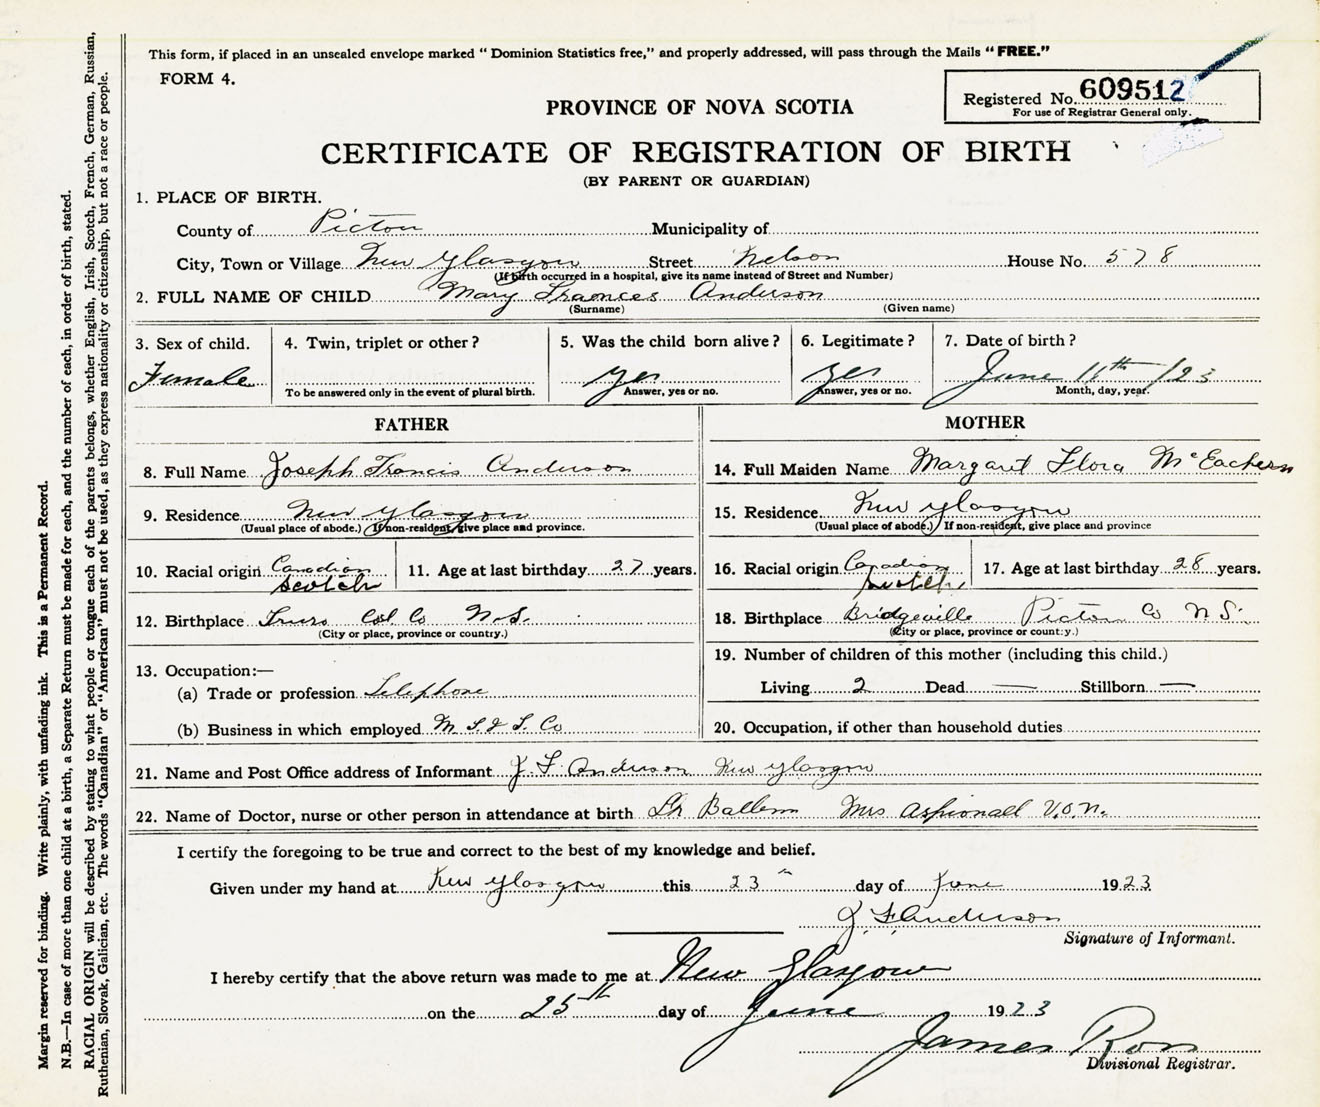 This form, if placed in an unsealed envelope marked “ Dominion Statistics free,” and properly addressed, will pass through the Mails “ FREE.”
FORM 4.
Registered No. 609512
For use of Registrar General only.
PROVINCE OF NOVA SCOTIA
CERTIFICATE OF REGISTRATION OF BIRTH
(BY PARENT OR GUARDIAN)
1. PLACE OF BIRTH.
County of Pictou Municipality of
City, Town or Village New Glasgow Street Nelson House No. 578
(If birth occurred in a hospital, give its name instead of Street and Number)
2. FULL NAME OF CHILD Mary Fraonces Anderson
(Surname) (Given name)
3. Sex of child. Female
4. Twin, triplet or other?
To be answered only in the event of plural birth.
5. Was the child born alive? yes
Answer, yes or no.
6. Legitimate? yes
Answer, yes or no.
7. Date of birth? June 11th /23
Month, day, year.
FATHER
8. Full Name Joseph Francis Anderson
9. Residence New Glasgow
(Usual place of abode.) (If non-resident, give place and province.
10. Racial origin Canadian
Scotch
11. Age at last birthday 27 years.
12. Birthplace Truro Col Co N.S.
(City or place, province or country.)
13. Occupation:—
(a) Trade or profession Telephone
(b) Business in which employed M T & T Co
MOTHER
14. Full Maiden Name Margaret Flora McEachern
15. Residence New Glasgow
(Usual place of abode.) If non-resident, give place and province
16. Racial origin Canadian
Scotch
17. Age at last birthday 28 years.
18. Birthplace Bridgeville Pictou Co N S.
(City or place, province or country.)
19. Number of children of this mother (including this child.)
Living 2 Dead — Stillborn —
20. Occupation, if other than household duties
21. Name and Post Office address of Informant J F Anderson New Glasgow
22. Name of Doctor, nurse or other person in attendance at birth Dr Ballem Mrs Aspionall V.O.N.
I certify the foregoing to be true and correct to the best of my knowledge and belief.
Given under my hand at New Glasgow this 23 day of June 1923
J F Anderson
Signature of Informant.
I hereby certify that the above return was made to me at New Glasgow
on the 25th day of June 1923
James Ross
Divisional Registrar.
Margin reserved for binding. Write plainly, with unfading ink. This is a Permanent Record.
N.B.—In case of more than one child at a birth, a Separate Return must be made for each, and the number of each, in order of birth, stated.
RACIAL ORIGIN will be described by stating to what people or tongue each of the parents belongs, whether English, Irish, Scotch, French, German, Russian,
Ruthenian, Slovak, Galician, etc. The words “Canadian” or “American” must not be used, as they express nationality or citizenship, but not a race or people.